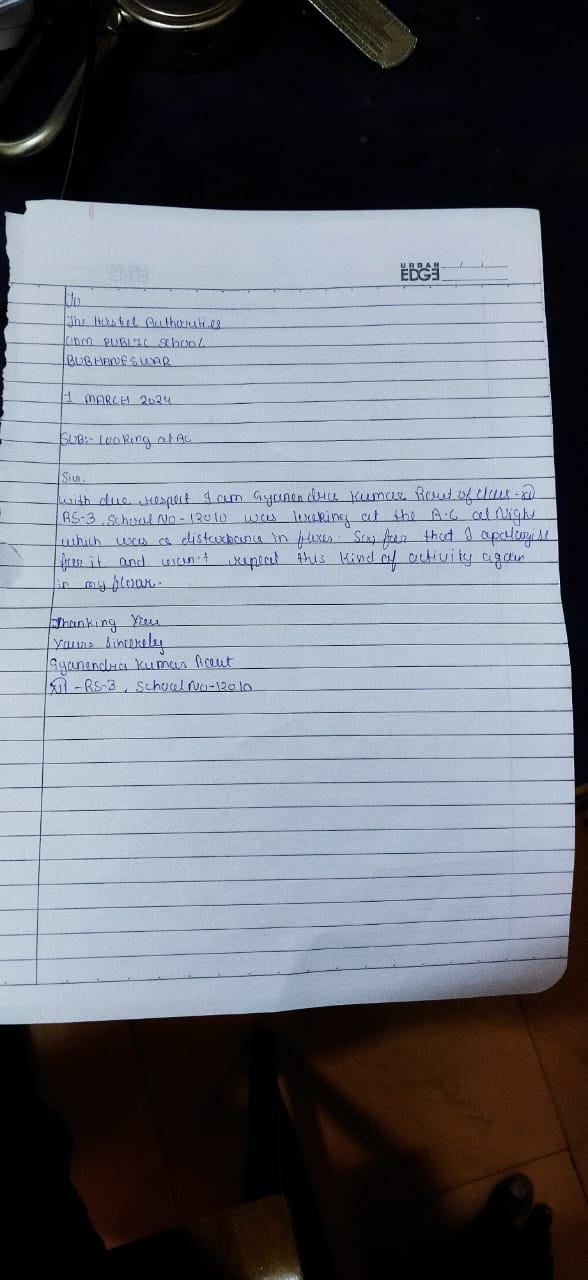 URBAN
EDGE
To
The Hostel Authorities
ODM PUBLIC School
BUBHANESWAR
1 MARCH 2024
SUB:- Looking at AC
Sir,
With due respect I am Gyanendra Kumar Raut of class - XII
RS-3, School No - 12010 was looking at the A.C at Night
which was a disturbance in floor. So, for that I apologise
for it and won't repeat this kind of activity again
in my floor.
Thanking You
Yours Sincerely
Gyanendra Kumar Raut
XII - RS-3, School No - 12010